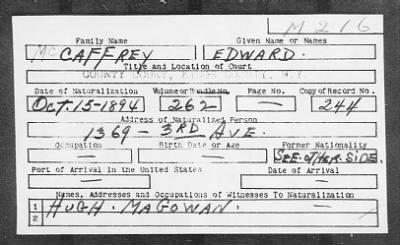 M 216
Family Name Given Name or Names
McCAFFREY EDWARD.
Title and Location of Court
COUNTY COURT, KINGS COUNTY, N.Y.
Date of Naturalization Volume or Bundle No. Page No. Copy of Record No.
Oct-15-1894 262 — 244
Address of Naturalized Person
1369 - 3RD AVE.
Occupation Birth Date or Age Former Nationality
— — SEE OTHER SIDE.
Port of Arrival in the United States Date of Arrival
— —
Names, Addresses and Occupations of Witnesses To Naturalization
1 HUGH. MAGOWAN. —
2